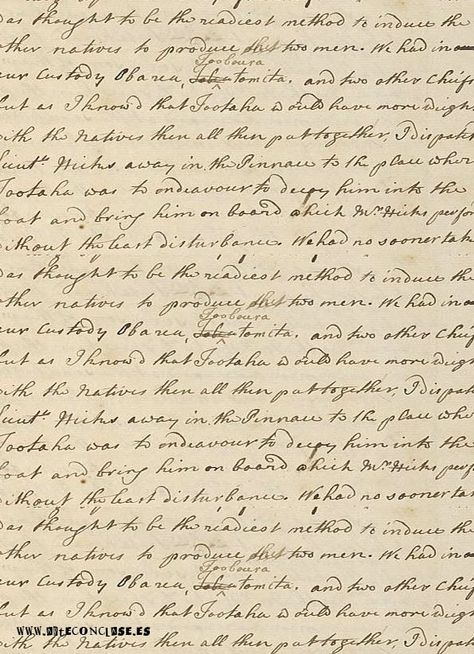 as thought to be the readiest method to induce the
ther natives to produce two men. We had in
Tooboura
ur Custody Obarea, tomita. and two other Chief
but as I know'd that Tootaha would have more weigh
with the Natives then all then put together, I dispatc
Lieutt. Hicks away in the Pinnace to the place wher
Tootaha was to endeavour to decoy him into the
boat and bring him on board which Mr Hicks perfo
without the least disturbance. We had no sooner tak
as thought to be the readiest method to induce the
ther natives to produce two men. We had in
Tooboura
ur Custody Obarea, tomita. and two other Chief
but as I know'd that Tootaha would have more weigh
with the Natives then all then put together, I dispatc
Lieutt. Hicks away in the Pinnace to the place wher
Tootaha was to endeavour to decoy him into the
boat and bring him on board which Mr Hicks perfo
without the least disturbance. We had no sooner tak
as thought to be the readiest method to induce the
ther natives to produce two men. We had in
Tooboura
ur Custody Obarea, tomita. and two other Chief
but as I know'd that Tootaha would have more weigh
with the Natives then all then put together, I dispatc